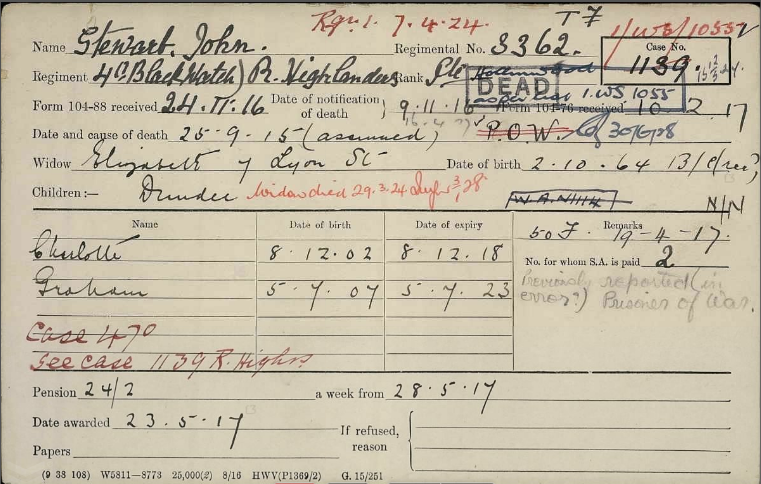 Rqn 1. 7.4.24. T 7 1/WS/10552
Name Stewart. John. Regimental No. 3362. Case No. 1139
Regiment 4 (Black Watch) R. Highlanders Rank Pte
DEAD
1.WS 1055
Form 104-88 received 24.11.16 Date of notification of death } 9.11.16 Form 104-76 received 10.2.17
Date and cause of death 25-9-15 (assumed) P.O.W. 30/6/28
Widow Elizabeth 7 Lyon St Date of birth 2.10.64 13/C/rec
Children:— Dundee Widow died 29.3.24 N/N
Name Date of birth Date of expiry Remarks
50 F. 19-4-17.
Charlotte 8.12.02 8.12.18 No. for whom S.A. is paid 2
Graham 5-7.07 5-7.23 Previously reported (in error?) Prisoner of War.
Case 470
See case 1139 R. Highrs
Pension 24/2 a week from 28.5.17
Date awarded 23.5.17 If refused, reason {
Papers
(9 38 108) W5811—8773 25,000(2) 8/16 HWV(P1369/2) G. 15/251